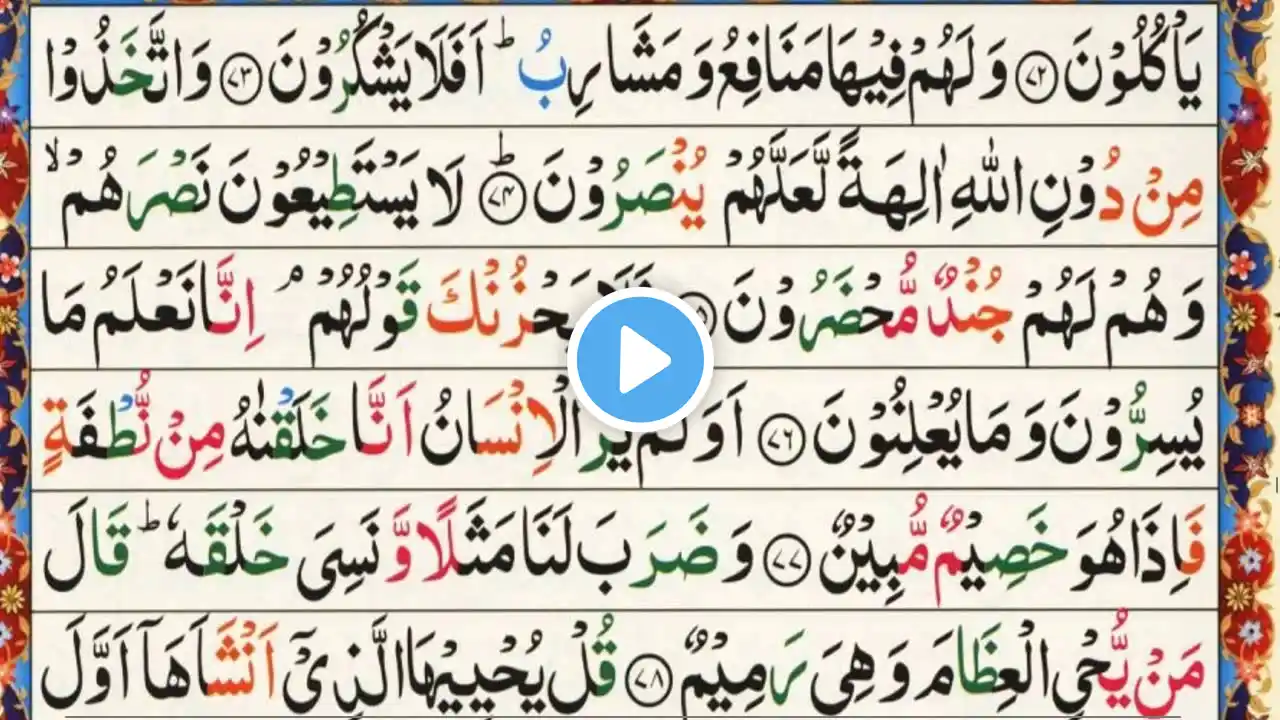 یَاْكُلُوْنَ ﴿۷۲﴾ وَ لَهُمْ فِیْهَا مَنَافِعُ وَ مَشَارِبُ ؕ اَفَلَا یَشْكُرُوْنَ ﴿۷۳﴾ وَ اتَّخَذُوْا
مِنْ دُوْنِ اللّٰهِ اٰلِهَةً لَّعَلَّهُمْ یُنْصَرُوْنَ ﴿۷۴﴾ؕ لَا یَسْتَطِیْعُوْنَ نَصْرَهُمْ ۙ
وَ هُمْ لَهُمْ جُنْدٌ مُّحْضَرُوْنَ یَحْزُنْكَ قَوْلُهُمْ ۘ اِنَّا نَعْلَمُ مَا
یُسِرُّوْنَ وَ مَا یُعْلِنُوْنَ ﴿۷۶﴾ اَوَ لَمْ یَرَ الْاِنْسَانُ اَنَّا خَلَقْنٰهُ مِنْ نُّطْفَةٍ
فَاِذَا هُوَ خَصِیْمٌ مُّبِیْنٌ ﴿۷۷﴾ وَ ضَرَبَ لَنَا مَثَلًا وَّ نَسِیَ خَلْقَهٗ ؕ قَالَ
مَنْ یُّحْیِ الْعِظَامَ وَ هِیَ رَمِیْمٌ ﴿۷۸﴾ قُلْ یُحْیِیْهَا الَّذِیْۤ اَنْشَاَهَاۤ اَوَّلَ